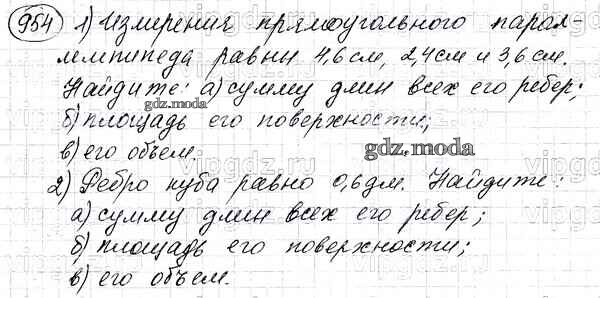 954 1) Измерения прямоугольного парал-
лелепипеда равны 4,6 см, 2,4 см и 3,6 см.
Найдите: а) сумму длин всех его ребер;
gdz.moda
б) площадь его поверхности;
в) его объем.
gdz.moda
2) Ребро куба равно 0,6 дм. Найдите:
а) сумму длин всех его ребер;
б) площадь его поверхности;
в) его объем.